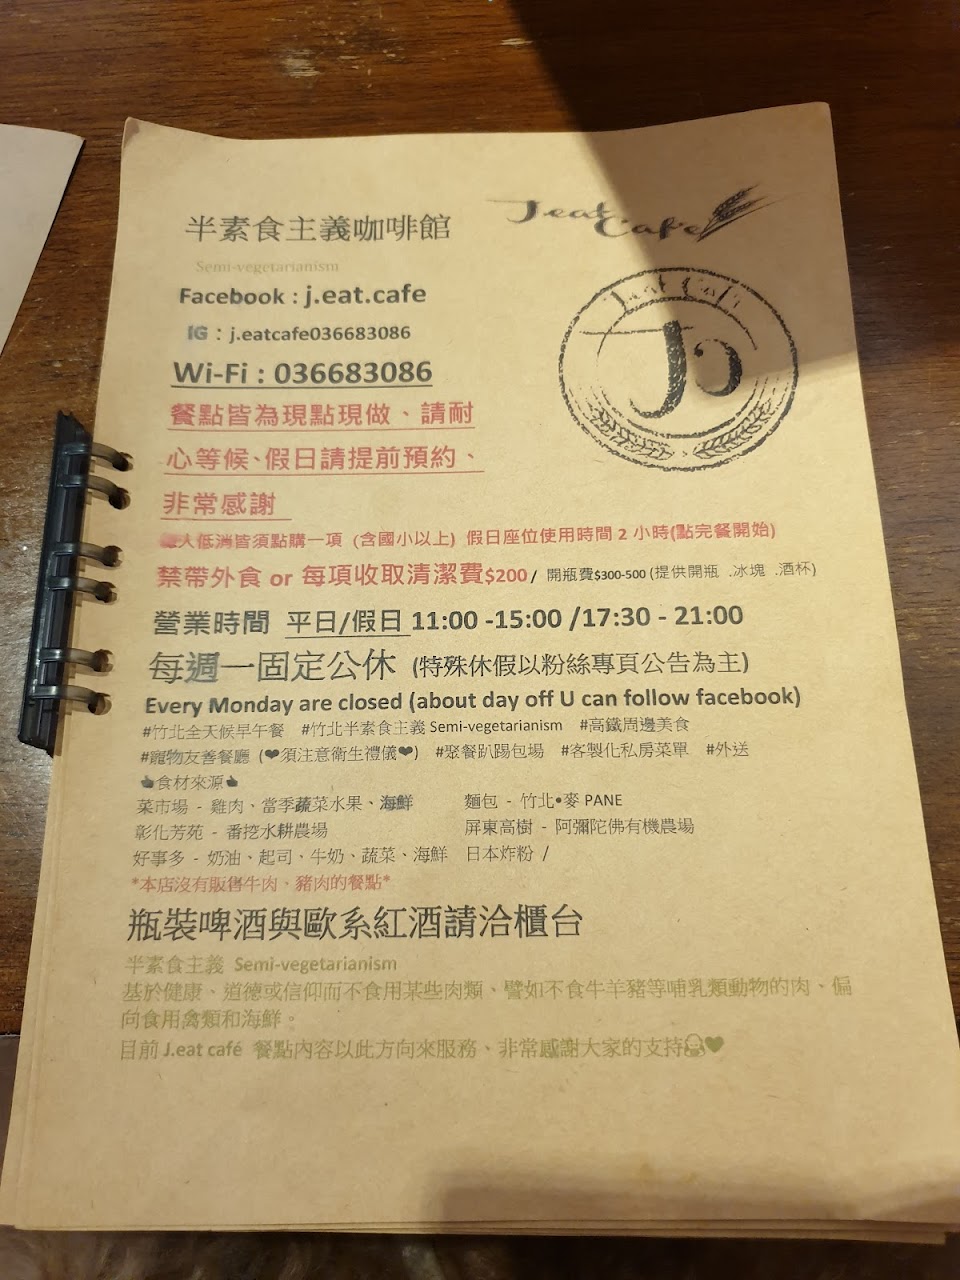 半素食主義咖啡館
Jeat Cafe
Semi-vegetarianism
Facebook : j.eat.cafe
IG : j.eatcafe036683086
Wi-Fi : 036683086
Jeat Cafe
餐點皆為現點現做、請耐
心等候、假日請提前預約、
非常感謝
人低消皆須點購一項 (含國小以上) 假日座位使用時間 2 小時(點完餐開始)
禁帶外食 or 每項收取清潔費$200 / 開瓶費$300-500 (提供開瓶 .冰塊 .酒杯)
營業時間 平日/假日 11:00 -15:00 /17:30 - 21:00
每週一固定公休 (特殊休假以粉絲專頁公告為主)
Every Monday are closed (about day off U can follow facebook)
#竹北全天候早午餐 #竹北半素食主義 Semi-vegetarianism #高鐵周邊美食
#寵物友善餐廳 (❤須注意衛生禮儀❤) #聚餐趴踢包場 #客製化私房菜單 #外送
👍食材來源👍
菜市場 - 雞肉、當季蔬菜水果、海鮮 麵包 - 竹北•麥 PANE
彰化芳苑 - 番挖水耕農場 屏東高樹 - 阿彌陀佛有機農場
好事多 - 奶油、起司、牛奶、蔬菜、海鮮 日本炸粉 /
*本店沒有販售牛肉、豬肉的餐點*
瓶裝啤酒與歐系紅酒請洽櫃台
半素食主義 Semi-vegetarianism
基於健康、道德或信仰而不食用某些肉類、譬如不食牛羊豬等哺乳類動物的肉、偏
向食用禽類和海鮮。
目前 J.eat café 餐點內容以此方向來服務、非常感謝大家的支持♥